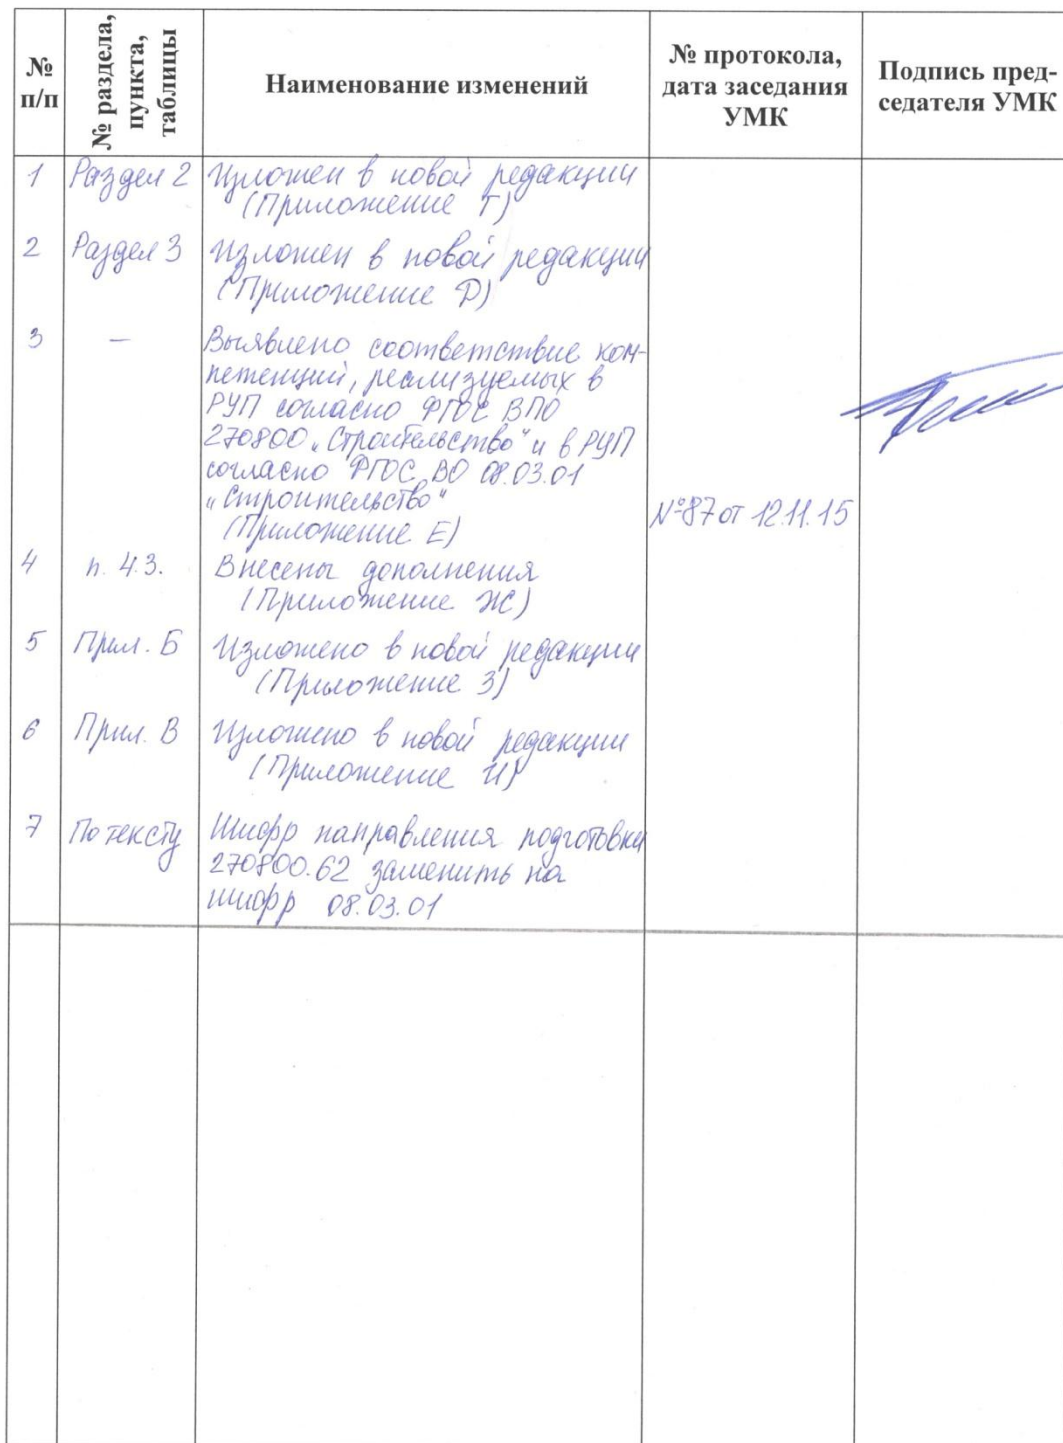 №
п/п
№ раздела,
пункта,
таблицы
Наименование изменений
№ протокола,
дата заседания
УМК
Подпись пред-
седателя УМК
1 Раздел 2 Изложен в новой редакции
(Приложение Г)
2 Раздел 3 Изложен в новой редакции
(Приложение Д)
3 — Выявлено соответствие ком-
петенций, реализуемых в
РУП согласно ФГОС ВПО
270800 „Строительство" и в РУП
согласно ФГОС ВО 08.03.01
„Строительство"
(Приложение Е)
№87 от 12.11.15
4 п. 4.3. Внесены дополнения
(Приложение Ж)
5 Прил. Б Изложено в новой редакции
(Приложение З)
6 Прил. В Изложено в новой редакции
(Приложение И)
7 По тексту Шифр направления подготовки
270800.62 заменить на
шифр 08.03.01